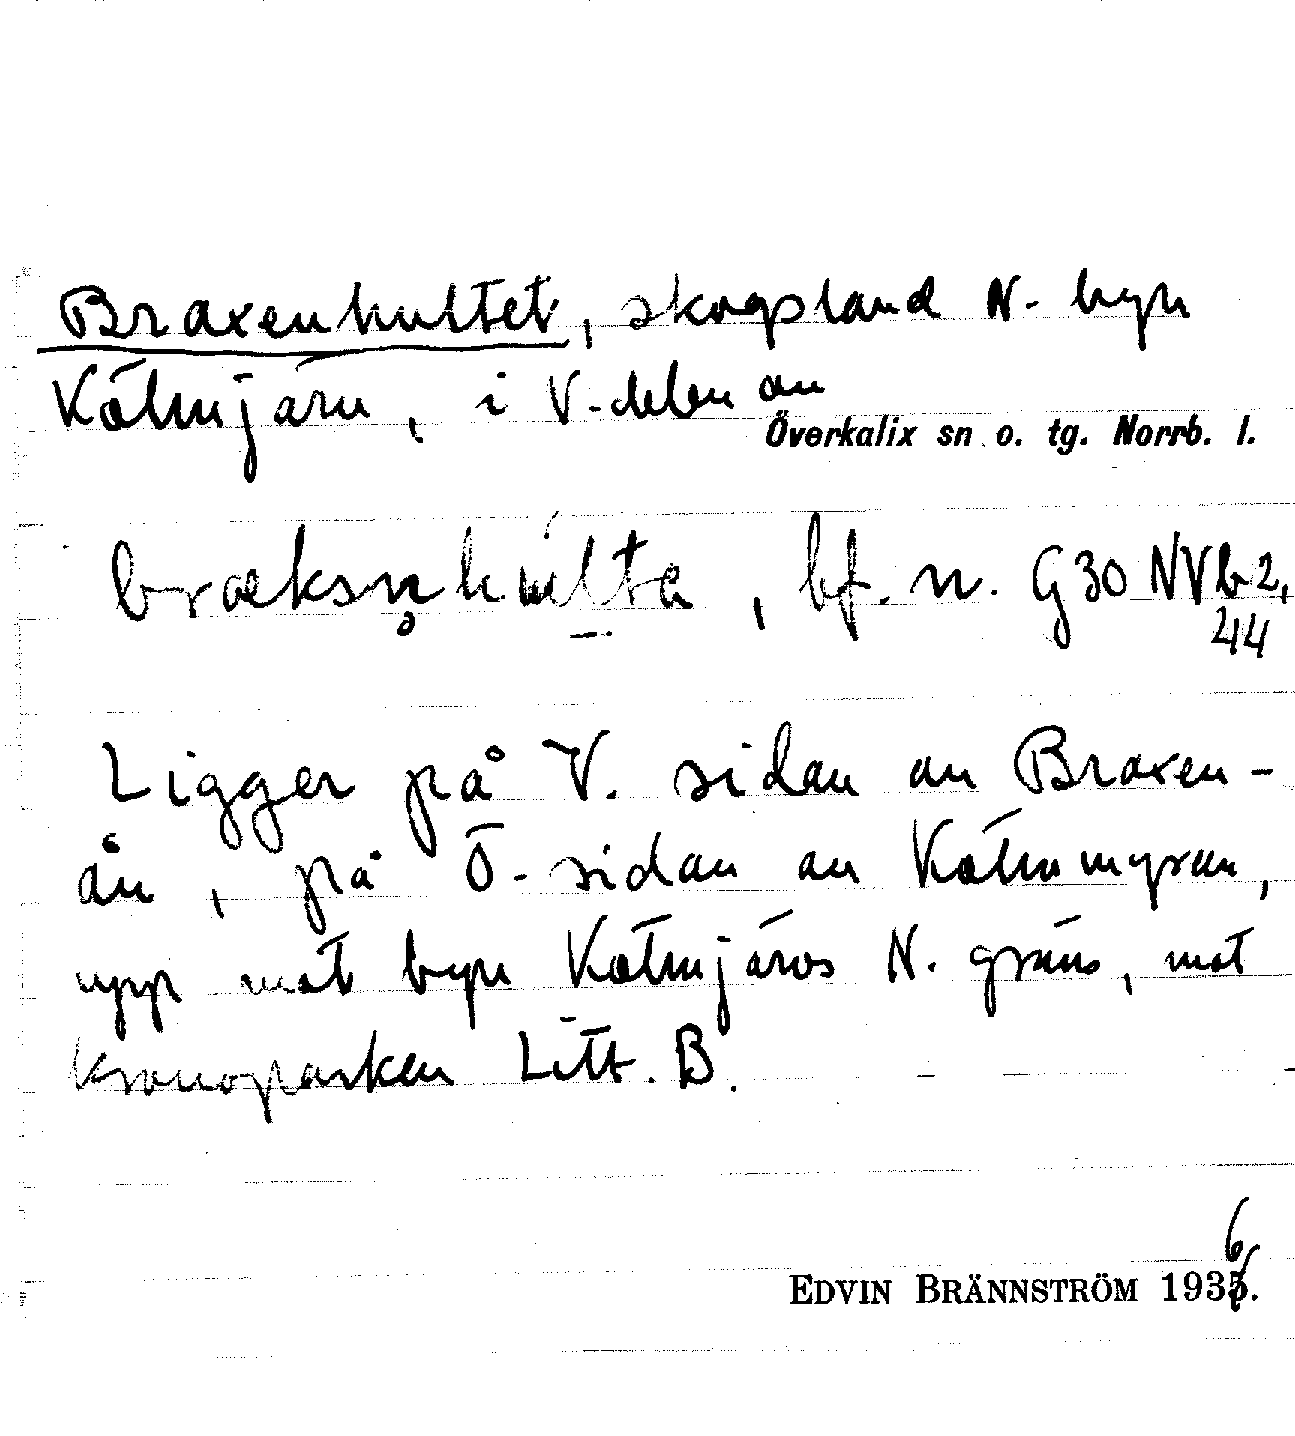 Braxenhultet, skogsland N. byn
Kölmjärv, i V-delen av
Överkalix sn o. tg. Norrb. l.
bræksn̥hulta, bf. n. G30 NVb2,
44
Ligger på V. sidan av Braxen-
ån, på Ö-sidan av
upp mot byn Kölmjärvs N. gräns, mot
kronoparken Litt. B.
6
EDVIN BRÄNNSTRÖM 1935.